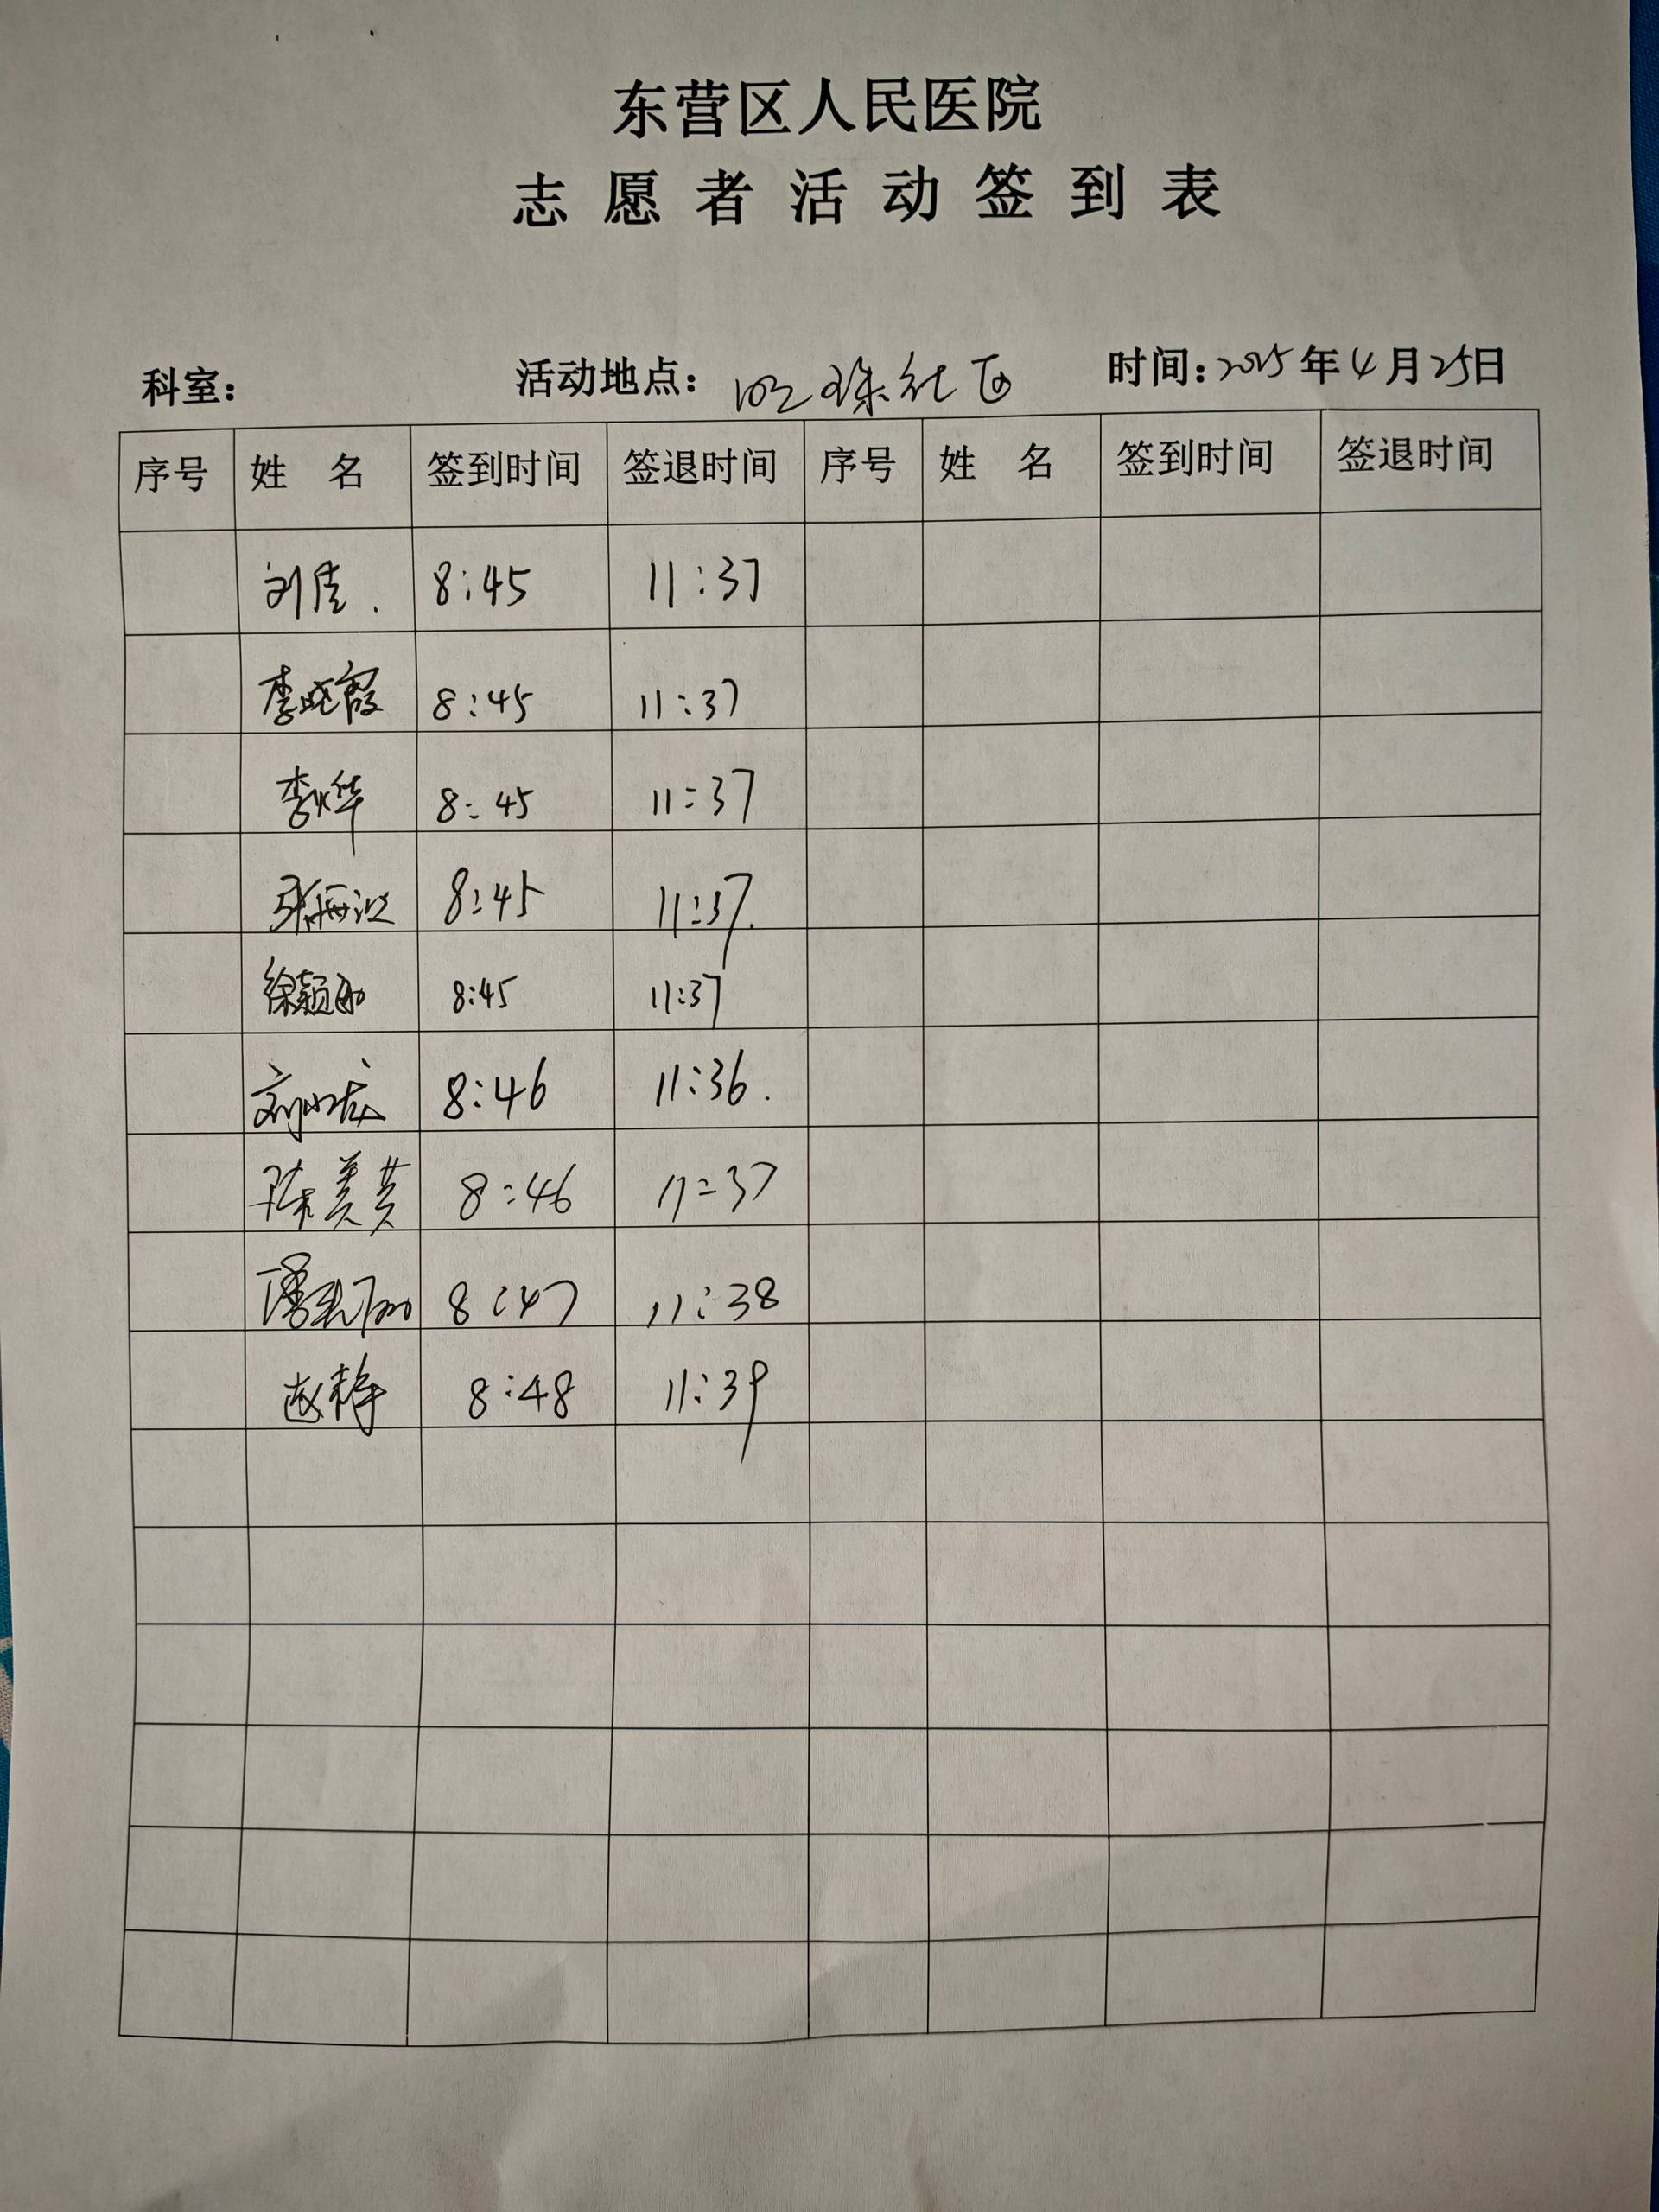 东营区人民医院
志愿者活动签到表
科室： 活动地点：明珠社区 时间：2025年4月25日
序号 姓名 签到时间 签退时间 序号 姓名 签到时间 签退时间
刘佳. 8:45 11:37
李晓霞 8:45 11:37
李华 8:45 11:37
张 8:45 11:37.
徐颖 8:45 11:37
刘小龙 8:46 11:36.
陈美英 8:46 11:37
潘 8:47 11:38
赵静 8:48 11:39